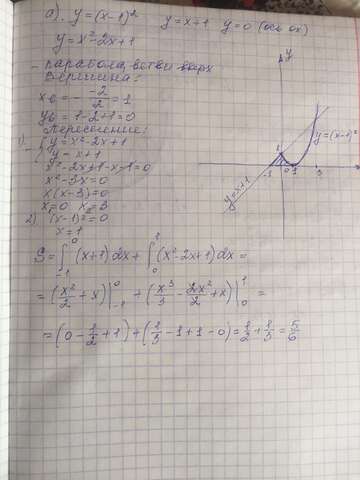 a). y=(x-1)² y=x+1 y=0 (ось ox)
y=x²-2x+1
- парабола, ветви вверх
Вершина:
x_в = - -2/2 = 1
y_в = 1-2+1=0
Пересечение:
1) { y=x²-2x+1
{ y=x+1
x²-2x+1-x-1=0
x²-3x=0
x(x-3)=0
x=0 x=3
2) (x-1)²=0
x=1
S=∫₋₁⁰ (x+1)dx + ∫₀¹ (x²-2x+1)dx =
= (x²/2 + x)|₋₁⁰ + (x³/3 - 2x²/2 + x)|₀¹ =
= (0-1/2+1)+(1/3-1+1-0)=1/2+1/3=5/6
y
y=(x-1)²
y=x+1
1
-1 0 1 3